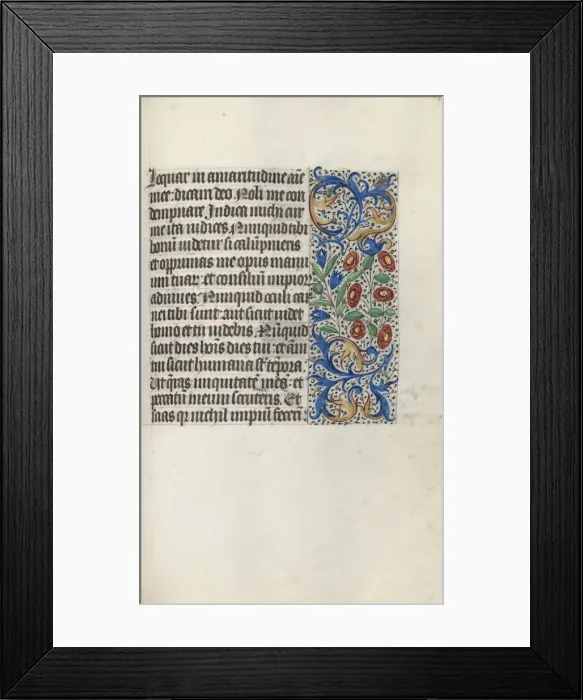 loquar in amaritudine aīe
mee: dicam deo Noli me con
dempnare Indica michi cur
me ita iudices Nunquid tibi
bonū uidetur si calūpnieris
et opprimas me opus manu
um tuar: et consiliū impior
adiuues. Nunquid oculi car
nei tibi sunt: aut sicut uidet
homo et tu uidebis. Nūquid
sicut dies hoīs dies tui: et ān
tui sicut humana st̄ tēpora.
Ut q̄ras iniquitatē meā: et
peccatū meum scruteris. Et
scias qr nichil impiū feceri